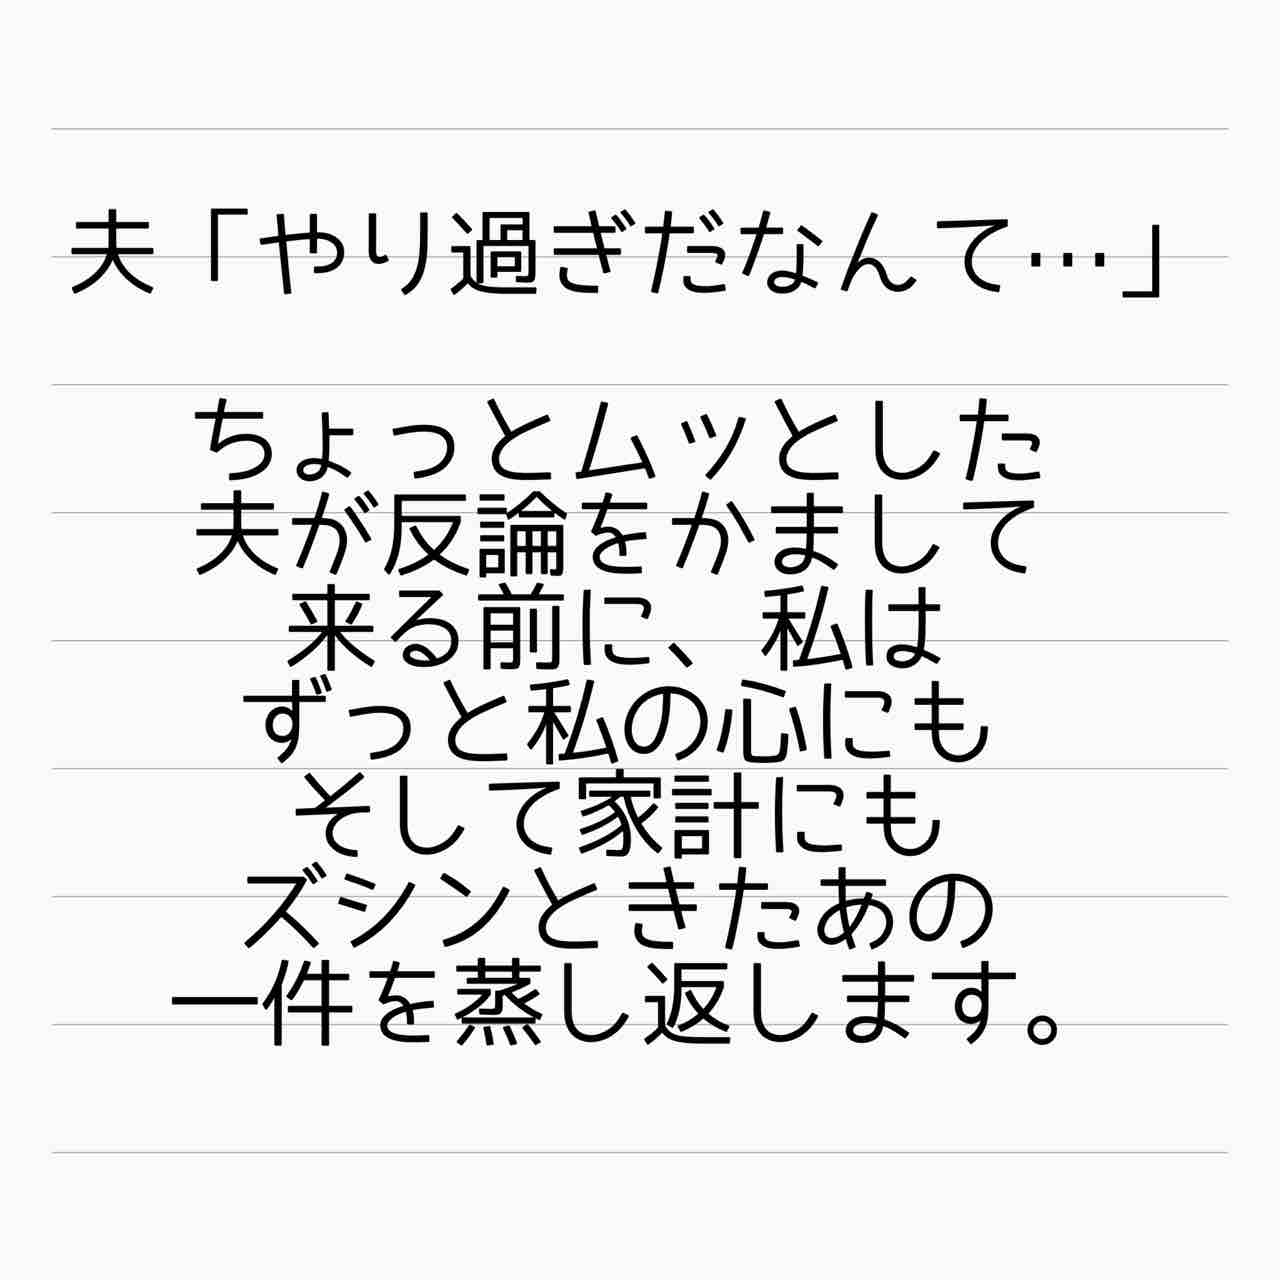 夫「やり過ぎだなんて…」
ちょっとムッとした
夫が反論をかまして
来る前に、私は
ずっと私の心にも
そして家計にも
ズシンときたあの
一件を蒸し返します。